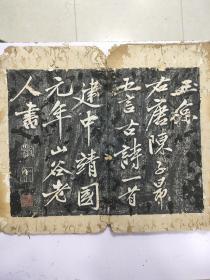 正緣
右唐陳子昂
五言古詩一首
建中靖國
元年山谷老
人書